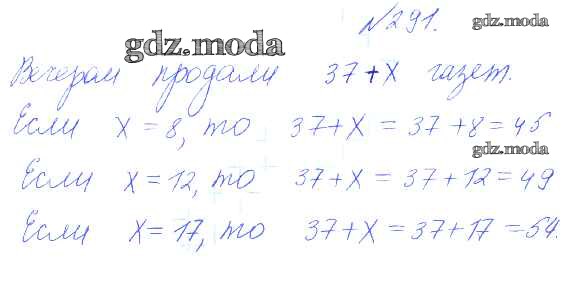 №291.
gdz.moda
gdz.moda
Вечером продали 37+X газет.
Если X = 8, то 37+X = 37+8 = 45
gdz.moda
Если X = 12, то 37+X = 37+12 = 49
Если X = 17, то 37+X = 37+17 = 54.